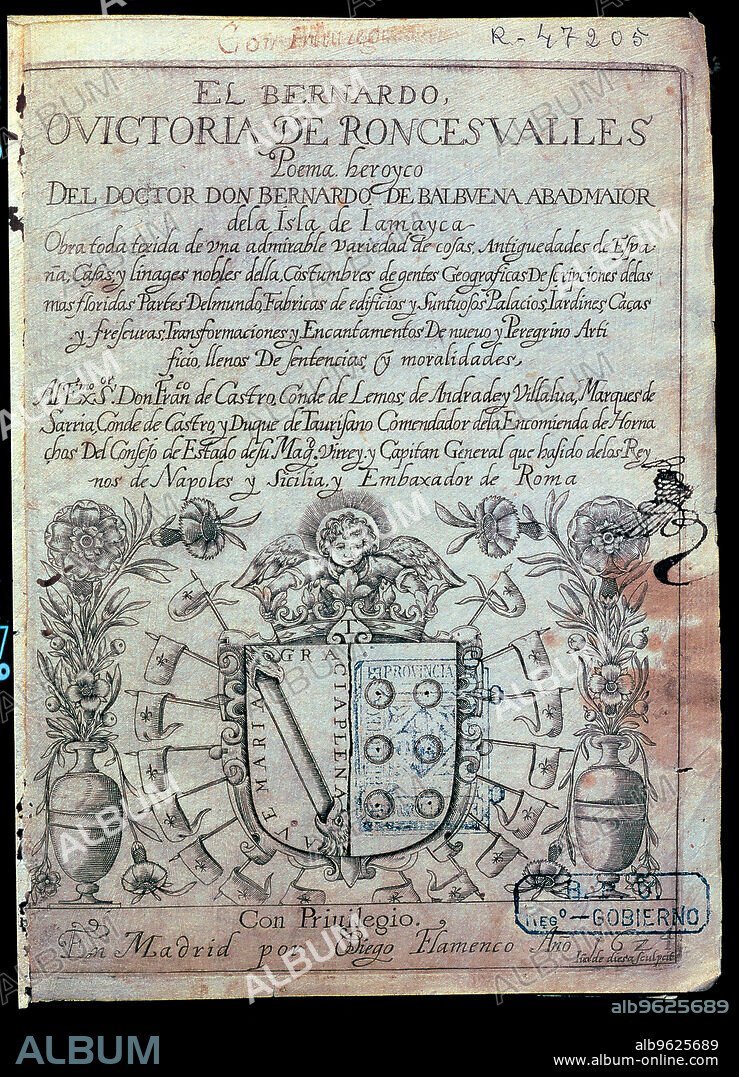 Con Priuilegio
R-47205
EL BERNARDO,
O VICTORIA DE RONCESVALLES
Poema heroyco
DEL DOCTOR DON BERNARDO DE BALBVENA ABAD MAIOR
de la Isla de Iamayca
Obra toda texida de vna admirable variedad de cosas, Antiguedades de Espa-
ña, Casas, y linages nobles della, Costumbres de gentes Geograficas Descripciones delas
mas floridas Partes Delmundo, Fabricas de edificios y Suntuosos Palacios, Iardines Caças
y frescuras, Transformaciones y Encantamentos De nuevo y Peregrino Arti
ficio, llenos De sentencias, y moralidades
Al Exmo Sor. Don Franco de Castro, Conde de Lemos, de Andrade, y Villalua, Marques de
Sarria, Conde de Castro y Duque de Taurisano Comendador dela Encomienda de Horna
chos Del Consejo de Estado de su Magd. Virrey, y Capitan General que ha sido delos Rey
nos de Napoles y Sicilia, y Embaxador de Roma
GRA
CIA PLENA
AVE MARIA
PROVINCIA
Regº-GOBIERNO
Con Priuilegio.
En Madrid por Diego Flamenco Año 162
sculpsit
ALBUM
alb9625689
alb9625689
www.album-online.com